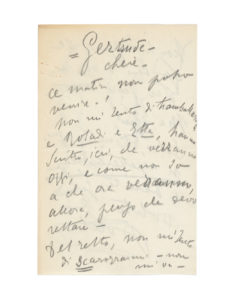 = Gertrude =
chère -
ce matin non potrò
venire - !
non mi sento di trambalare
e Rosad e Etta, hanno
scritto, ieri, che verranno
oggi, e come non so
a che ora verranno,
allora, penso che devo
restare -
Del resto, non mi sento
di - non
mi va -